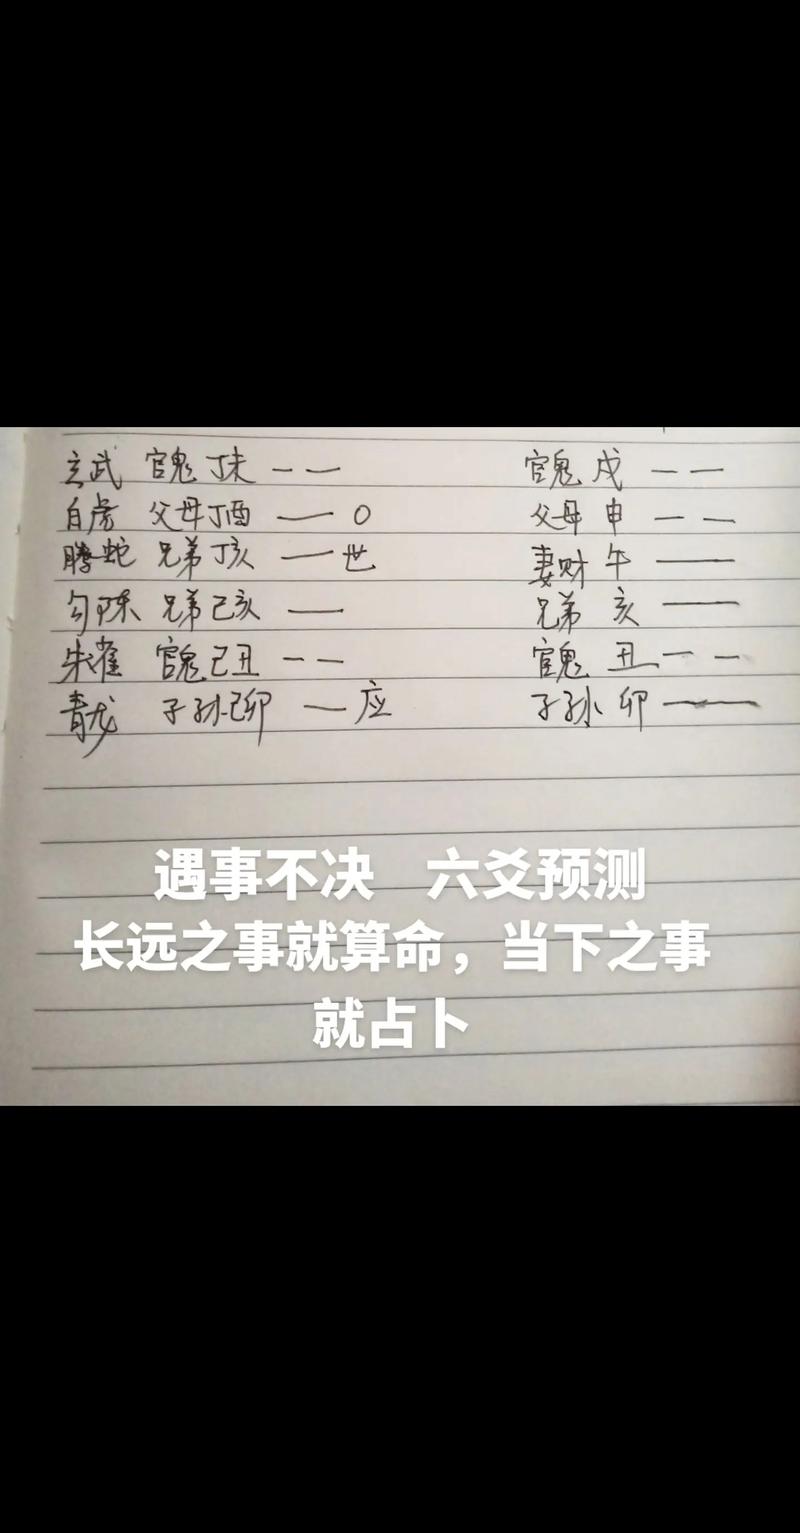 玄武 官鬼 丁未 — — 官鬼 戌 — —
白虎 父母丁酉 — O 父母 申 — —
腾蛇 兄弟丁亥 — 世 妻财 午 —
勾陈 兄弟己亥 — 兄弟 亥 —
朱雀 官鬼己丑 — — 官鬼 丑 — —
青龙 子孙己卯 — 应 子孙 卯 —
遇事不决 六爻预测
长远之事就算命，当下之事
就占卜